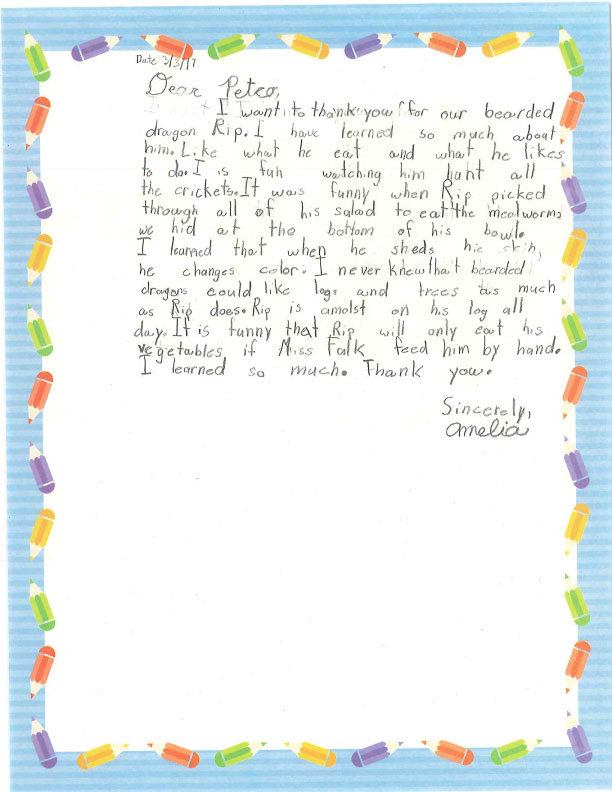 Date 3/3/17
Dear Petco,
I want to thank you for our bearded
dragon Rip. I have learned so much about
him. Like what he eat and what he likes
to do. I is fun watching him hunt all
the crickets. It was funny when Rip picked
through all of his salad to eat the mealworms
we hid at the bottom of his bowl.
I learned that when he sheds his skin,
he changes color. I never knew that bearded
dragons could like logs and trees as much
as Rip does. Rip is amolst on his log all
day. It is funny that Rip will only eat his
vegetables if Miss Falk feed him by hand.
I learned so much. Thank you.
Sincerely,
Amelia